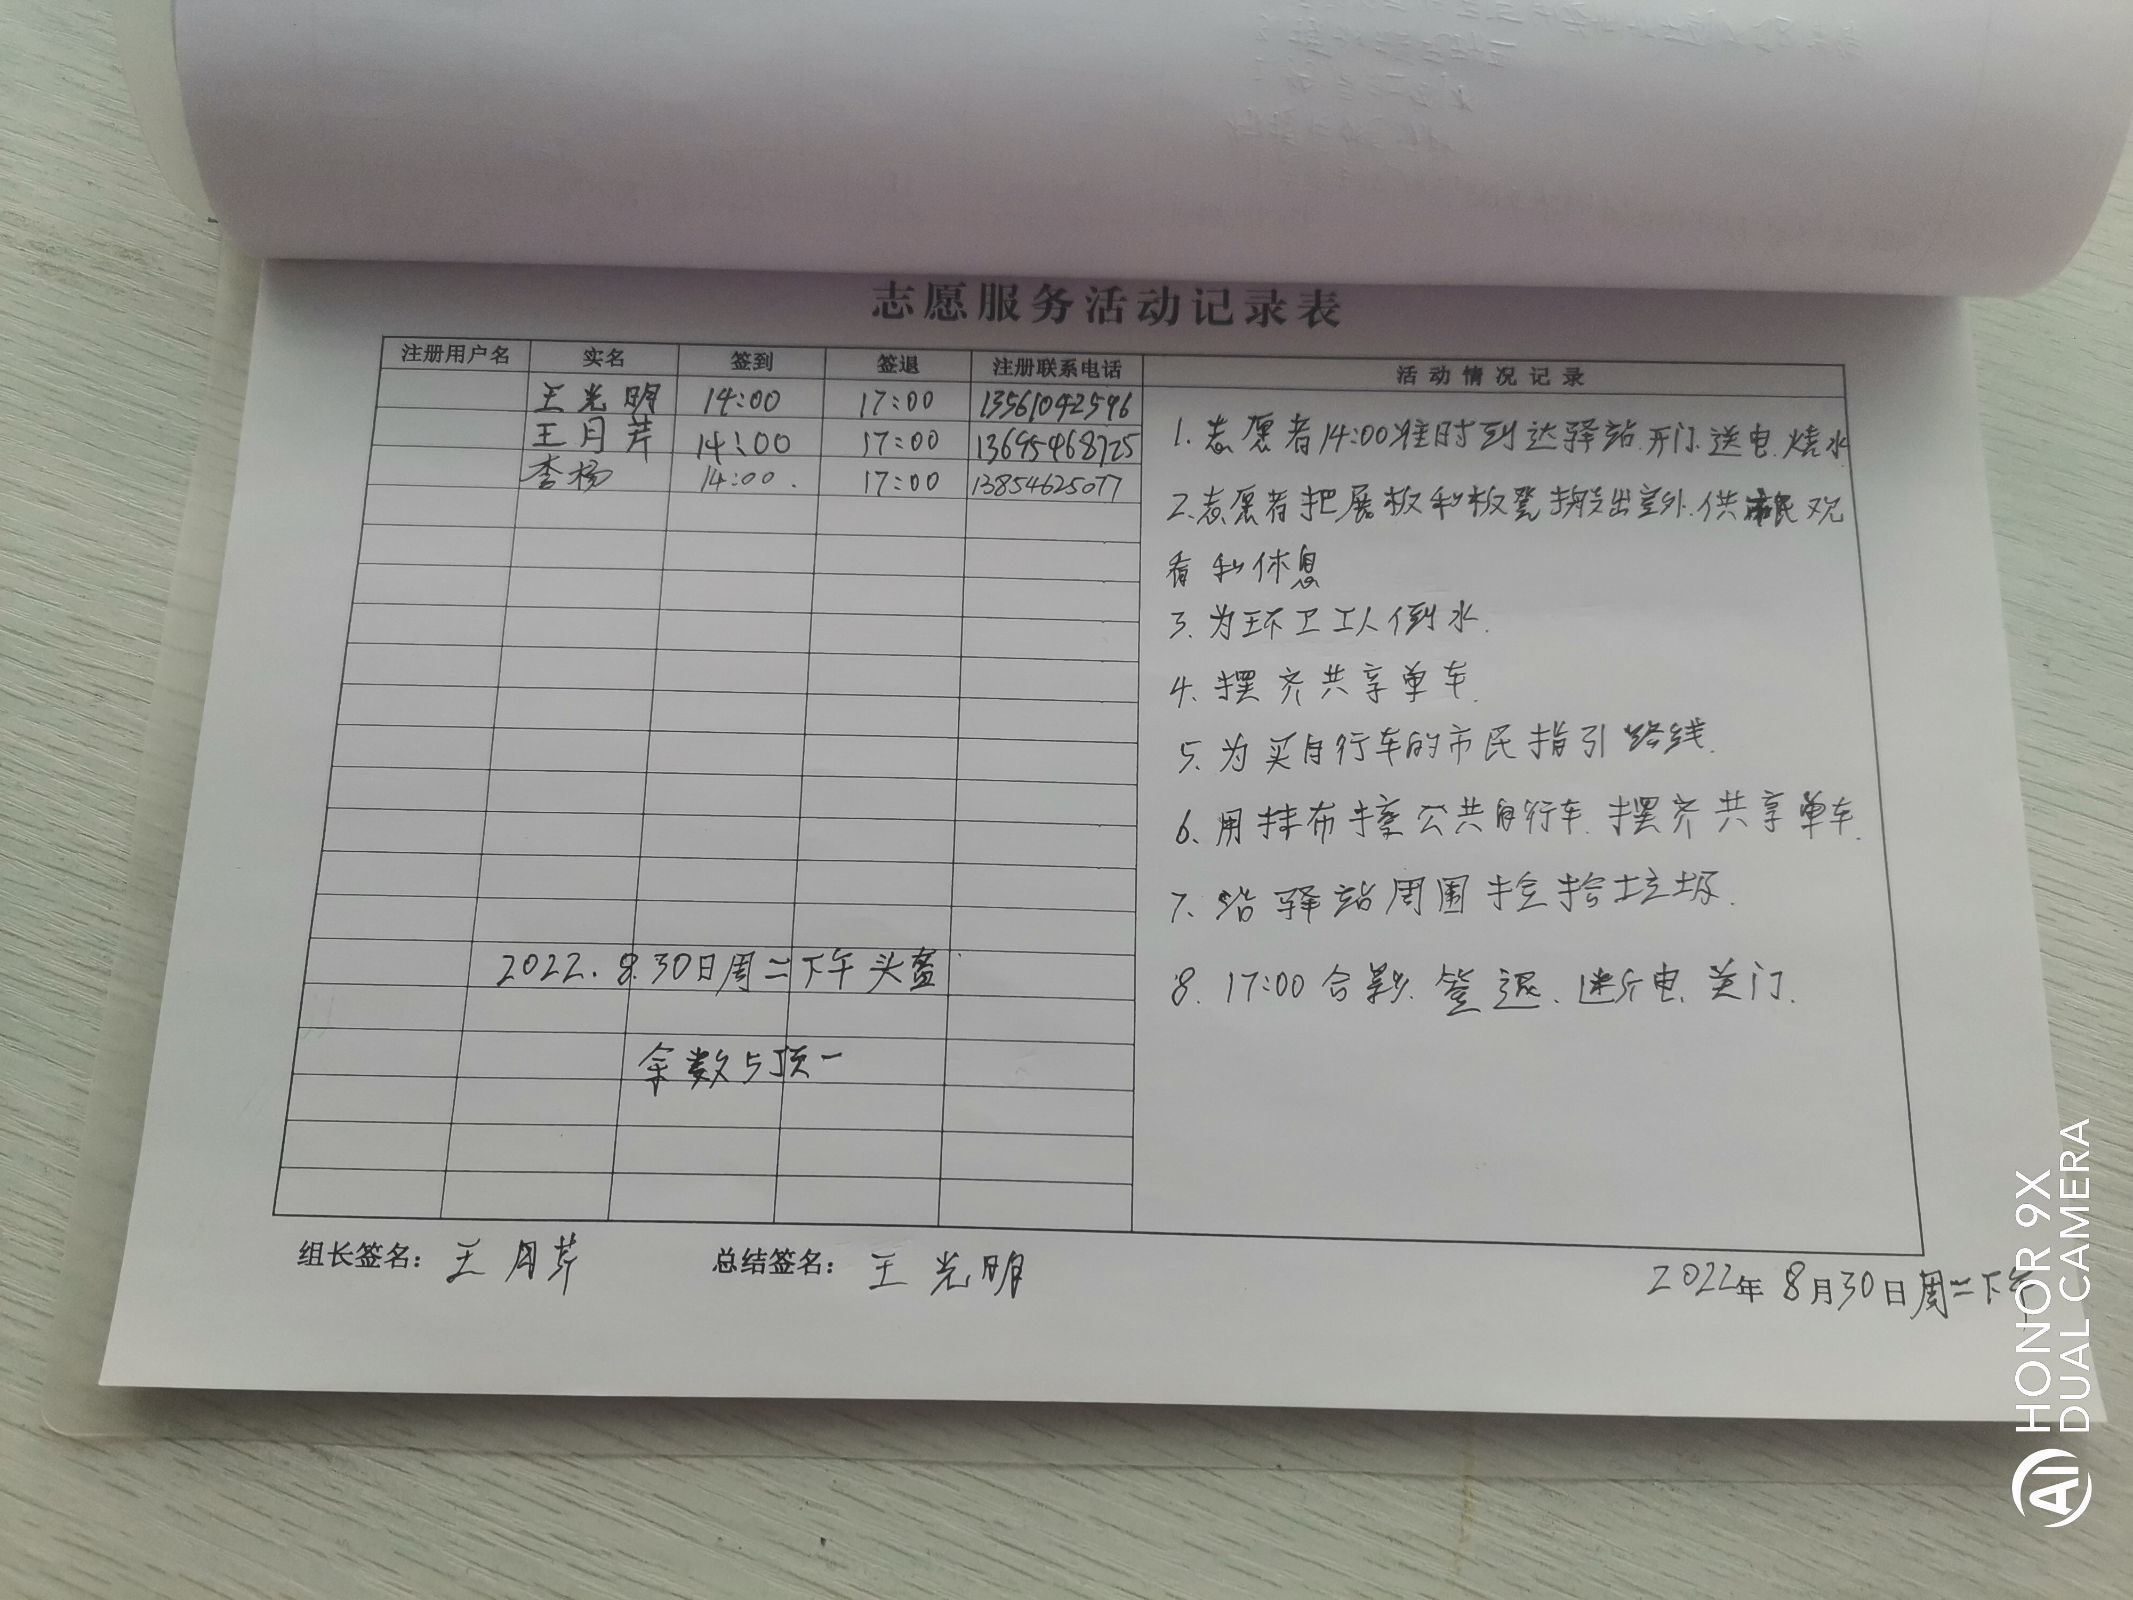 志愿服务活动记录表
注册用户名 实名 签到 签退 注册联系电话 活动情况记录
王光明 14:00 17:00 13561042596
王月芹 14:00 17:00 13695468725
李杨 14:00. 17:00 13854625077
1.志愿者14:00准时到达驿站.开门.送电.烧水
2.志愿者把展板和板凳搬出室外.供市民观
看和休息
3、为环卫工人倒水.
4、摆齐共享单车.
5、为买自行车的市民指引路线.
6、用抹布擦公共自行车.摆齐共享单车.
7、沿驿站周围捡拾垃圾.
8.17:00合影.签退、断电.关门.
2022.8.30日周二下午头盔
余数5顶一
组长签名：王月芹 总结签名：王光明
2022年8月30日周二下午
HONOR 9X
DUAL CAMERA
AI